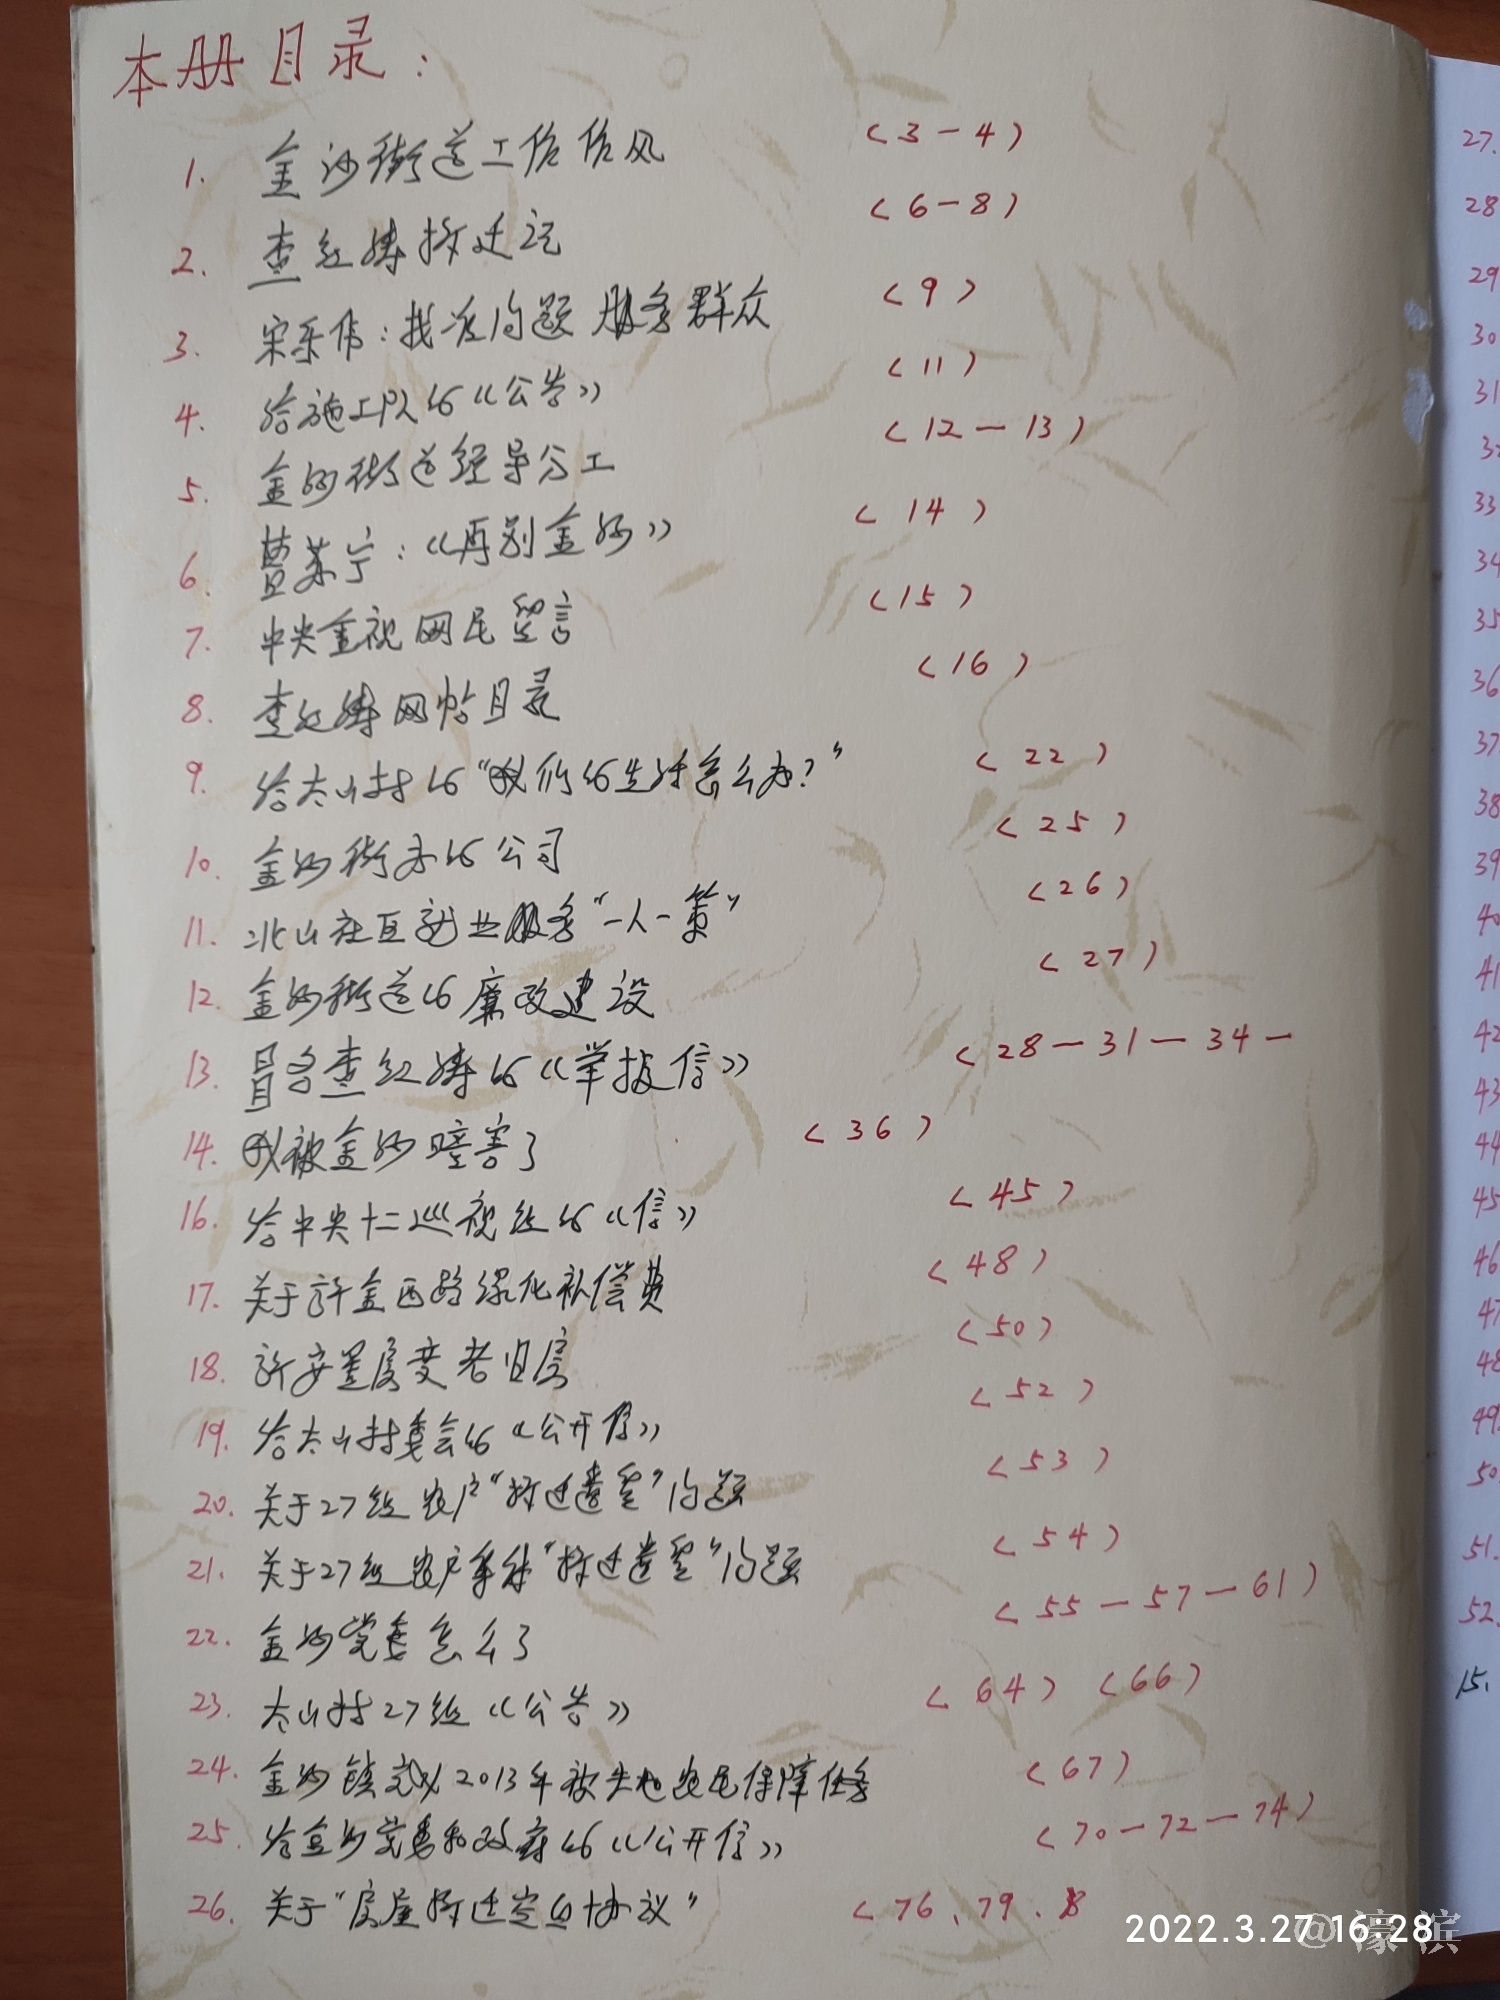 本册目录:
1. 金沙街道工作作风 (3-4)
2. 查红腾拆迁记 (6-8)
3. 宋乐伟:找准问题 服务群众 (9)
4. 给施工队的《公告》 (11)
5. 金沙街道领导分工 (12-13)
6. 曹苏宁:《再别金沙》 (14)
7. 中央金视网民留言 (15)
8. 查红腾网帖目录 (16)
9. 给太山村的"我们的生活怎么办?" (22)
10. 金沙街办的公司 (25)
11. 北山社区就业服务"一人一策" (26)
12. 金沙街道的廉政建设 (27)
13. 冒名查红腾的《举报信》 (28-31-34-
14. 我被金沙瞳害了 (36)
16. 给中央十二巡视组的《信》 (45)
17. 关于许金西路绿化补偿费 (48)
18. 许安置房变老旧房 (50)
19. 给太山村委会的《公开信》 (52)
20. 关于27组农户"拆迁遗留"问题 (53)
21. 关于27组农户系种"拆迁遗留"问题 (54)
22. 金沙党委怎么了 (55-57-61)
23. 太山村27组《公告》 (64) (66)
24. 金沙镇完成2013年被失地农民保障任务 (67)
25. 给金沙党委和政府的《公开信》 (70-72-74)
26. 关于"房屋拆迁定点协议" (76、79、8
27.
28
29
30
31
33
34
35
36
37
38
39
40
41
42
43
44
45
46
47
48
49
50
51.
52.
15.
2022.3.27 16:28
@濠滨